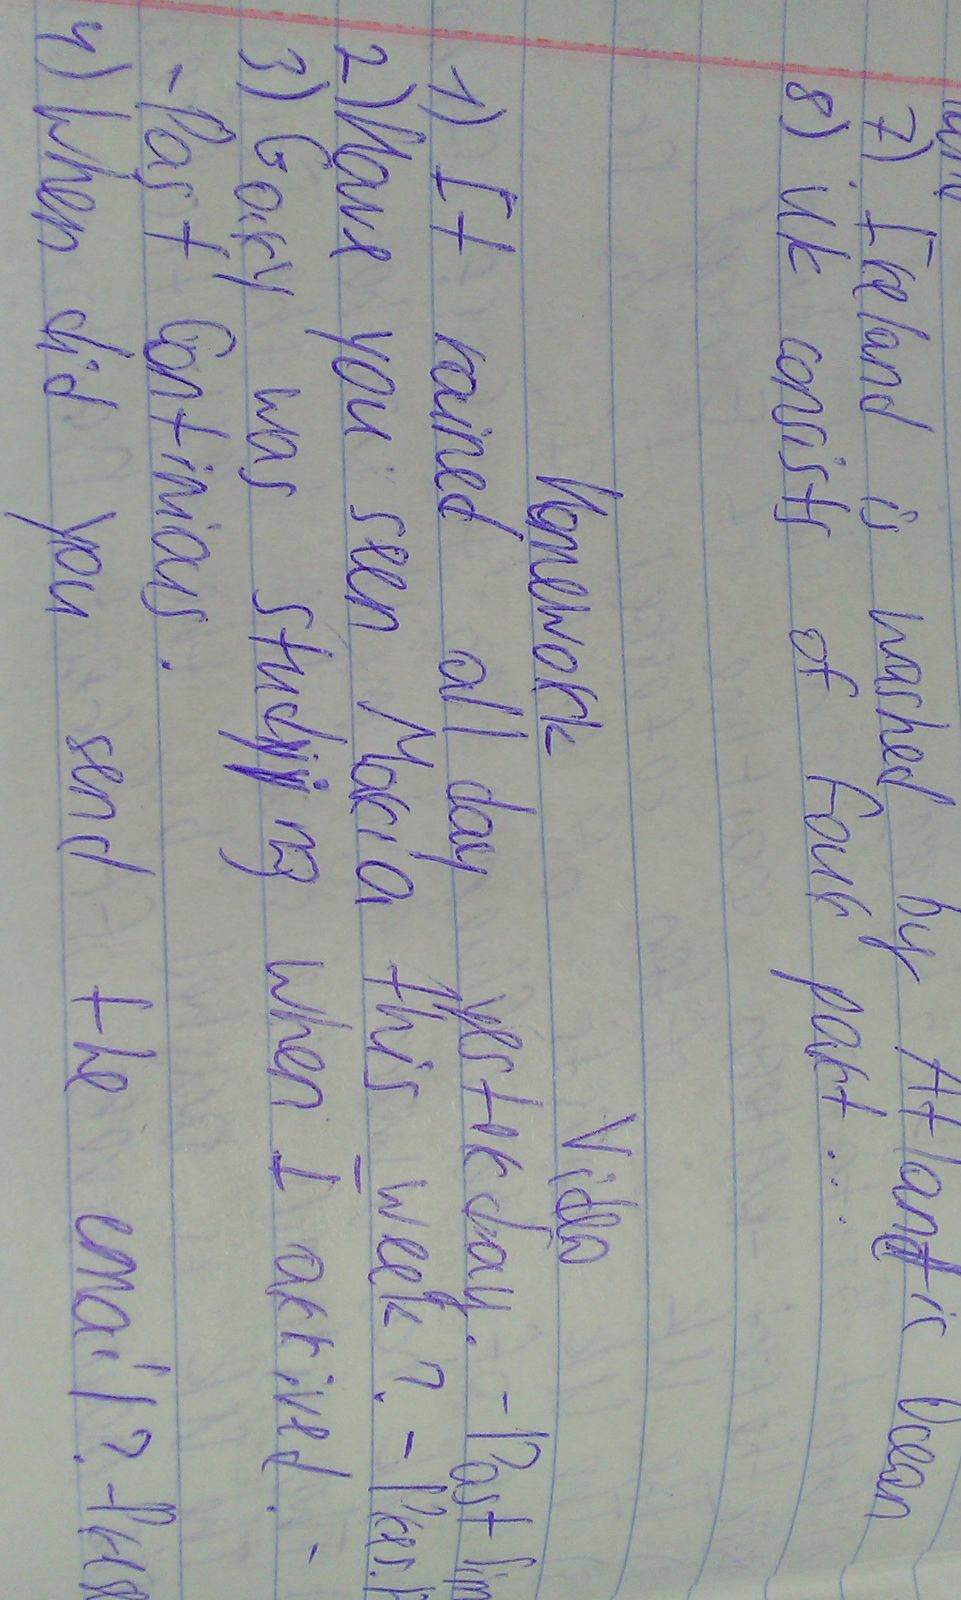 7) Ireland is washed by Atlantic Ocean
8) Uk consists of Four part...
Homework
1) It rained all day yesterday. - Past Sim
2) Have you seen Maria this week? - Pres.
3) Gary was studying when I arrived. -
- Past Continious.
4) When did you send the email? -